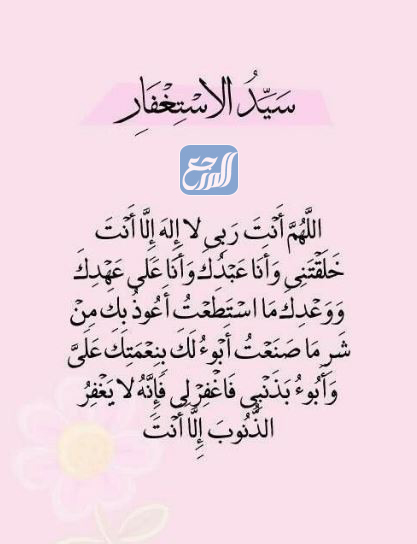 سَيِّدُ الاسْتِغْفَارِ
المرجع
اللَّهُمَّ أَنْتَ رَبِي لا إِلهَ إِلَّا أَنْتَ
خَلَقْتَنِي وَأَنَا عَبْدُكَ وَأَنَا عَلَى عَهْدِكَ
وَوَعْدِكَ مَا اسْتَطَعْتُ أَعُوذُ بِكَ مِنْ
شَرِ مَا صَنَعْتُ أَبُوءُ لَكَ بِنِعْمَتِكَ عَلَيَّ
وَأَبُوءُ بَذَنْبِي فَاغْفِرْ لِي فَإِنَّهُ لا يَغْفِرُ
الذُّنُوبَ إِلَّا أَنْتَ